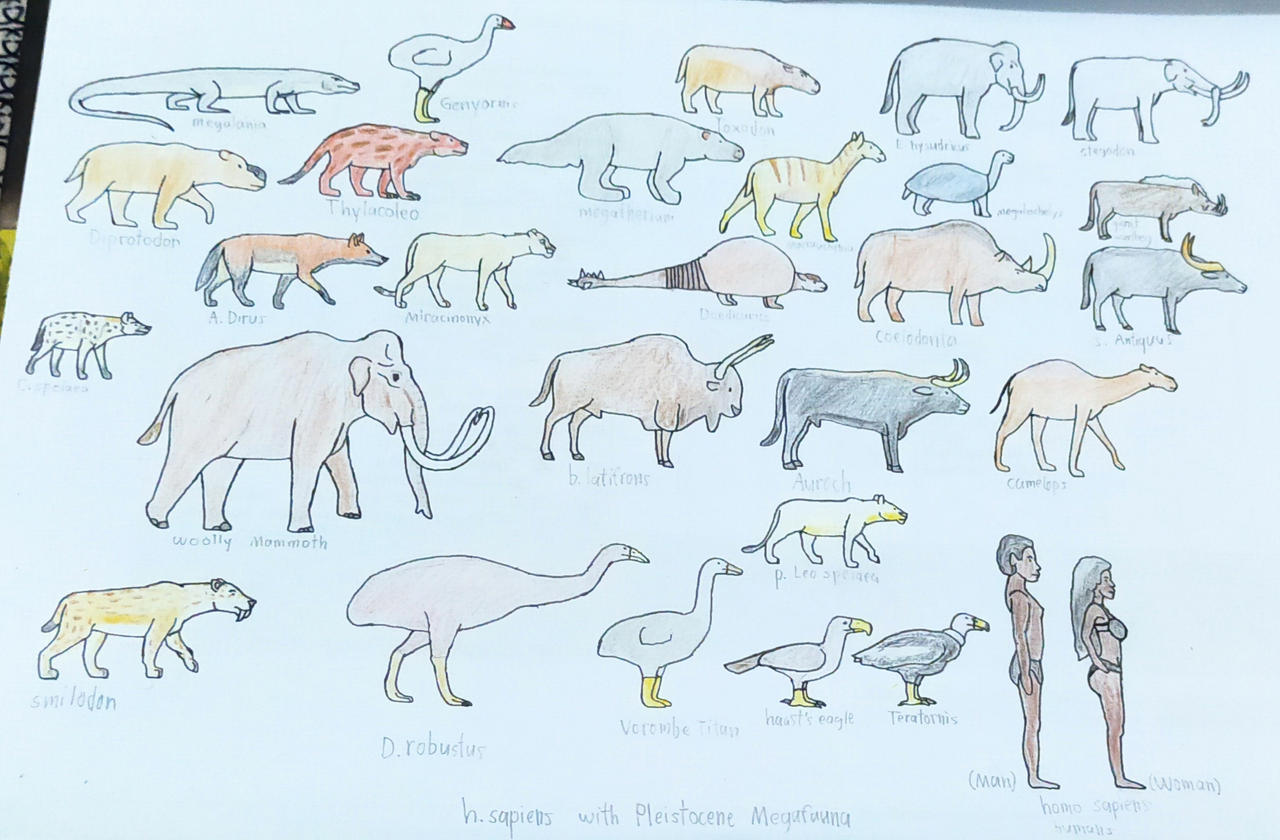 megalania
Genyornis
Toxodon
E. hysudricus
stegodon
Diprotodon
Thylacoleo
megatherium
macrauchenia
megalochelys
giant
warthog
A. Dirus
Miracinonyx
Doedicurus
Coelodonta
S. Antiquus
C. spelaea
woolly Mammoth
b. latifrons
Auroch
camelops
p. Leo spelaea
smilodon
D. robustus
Vorombe Titan
haast's eagle
Teratornis
(Man)
(Woman)
homo sapiens
humans
h. sapiens with Pleistocene Megafauna